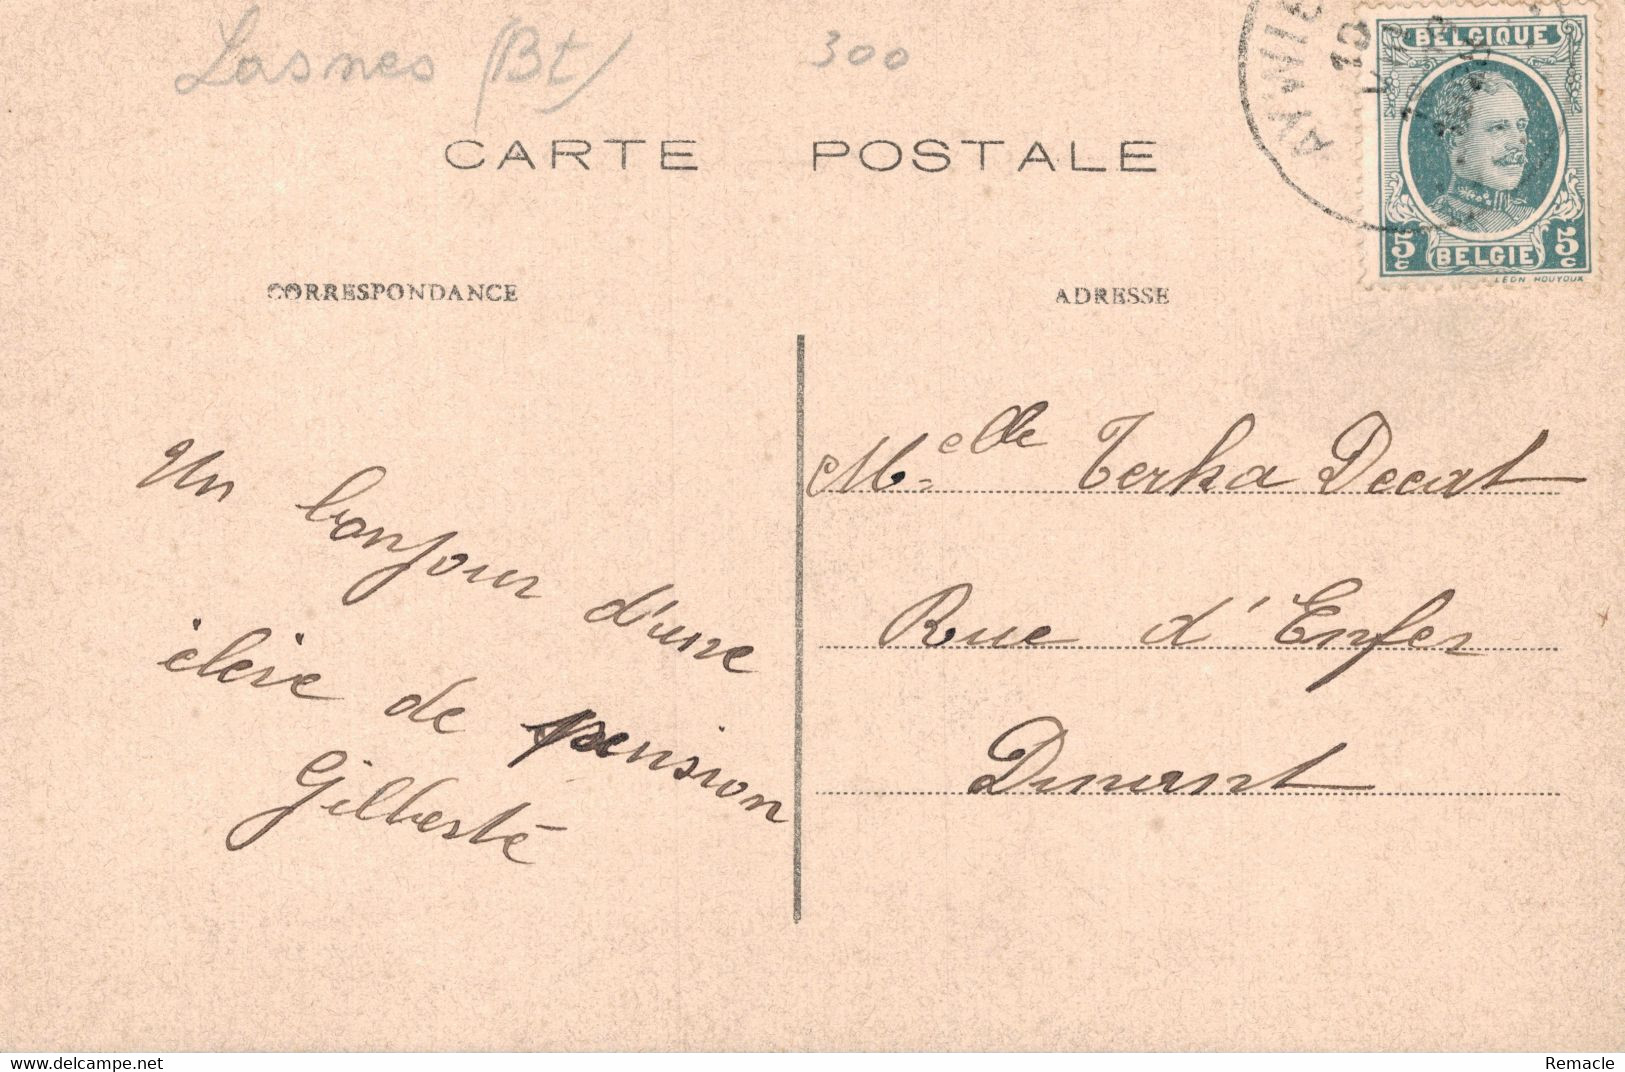 Lasnes (Bt)
300
AYWIE
10
BELGIQUE
5c
5c
BELGIE
LEON HOUYOUX
CARTE POSTALE
CORRESPONDANCE
ADRESSE
Un bonjour d'une
élève de pension
Gilberte
Melle Terka Decat
Rue d'Enfer
Dinant
delcampe.net
Remacle